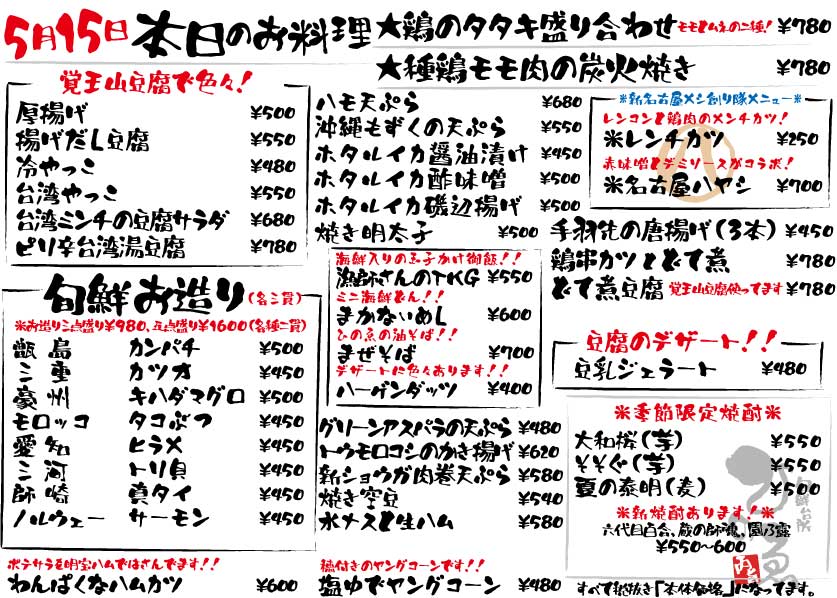 5月15日 本日のお料理
★鶏のタタキ盛り合わせ モモとムネの二種! ¥780
★種鶏モモ肉の炭火焼き ¥780
覚王山豆腐で色々!
厚揚げ ¥500
揚げだし豆腐 ¥550
冷やっこ ¥480
台湾やっこ ¥550
台湾ミンチの豆腐サラダ ¥680
ピリ辛台湾湯豆腐 ¥780
旬鮮お造り(各三貫)
※お造り三点盛り¥980、五点盛り¥1600(各種二貫)
甑島 カンパチ ¥500
三重 カツオ ¥450
豪州 キハダマグロ ¥500
モロッコ タコぶつ ¥450
愛知 ヒラメ ¥450
三河 トリ貝 ¥450
師崎 真タイ ¥450
ノルウェー サーモン ¥450
ポテサラを明宝ハムではさんでます!!
わんぱくなハムカツ ¥600
ハモ天ぷら ¥680
沖縄もずくの天ぷら ¥550
ホタルイカ醤油漬け ¥450
ホタルイカ酢味噌 ¥500
ホタルイカ磯辺揚げ ¥500
焼き明太子 ¥500
海鮮入りの玉子かけ御飯!!
漁師さんのTKG ¥550
ミニ海鮮どん!!
まかないめし ¥600
ひの魚の油そば!!
まぜそば ¥700
デザートに色々あります!!
ハーゲンダッツ ¥400
グリーンアスパラの天ぷら ¥480
トウモロコシのかき揚げ ¥620
新ショウガ肉巻天ぷら ¥580
焼き空豆 ¥540
水ナスと生ハム ¥580
穂付きのヤングコーンです!!
塩ゆでヤングコーン ¥480
※新名古屋メシ創り隊メニュー※
レンコンと鶏肉のメンチカツ!
※レンチカツ ¥250
赤味噌とデミソースがコラボ!
※名古屋ハヤシ ¥700
手羽先の唐揚げ(3本) ¥450
鶏串カツとどて煮 ¥780
どて煮豆腐 覚王山豆腐使ってます ¥780
豆腐のデザート!!
豆乳ジェラート ¥480
※季節限定焼酎※
大和桜(芋) ¥550
そそぐ(芋) ¥550
夏の泰明(麦) ¥500
※新焼酎あります!※
六代目百合、蔵の師魂、園乃露
¥550~600
旬鮮台所
すべて税抜き「本体価格」になってます。